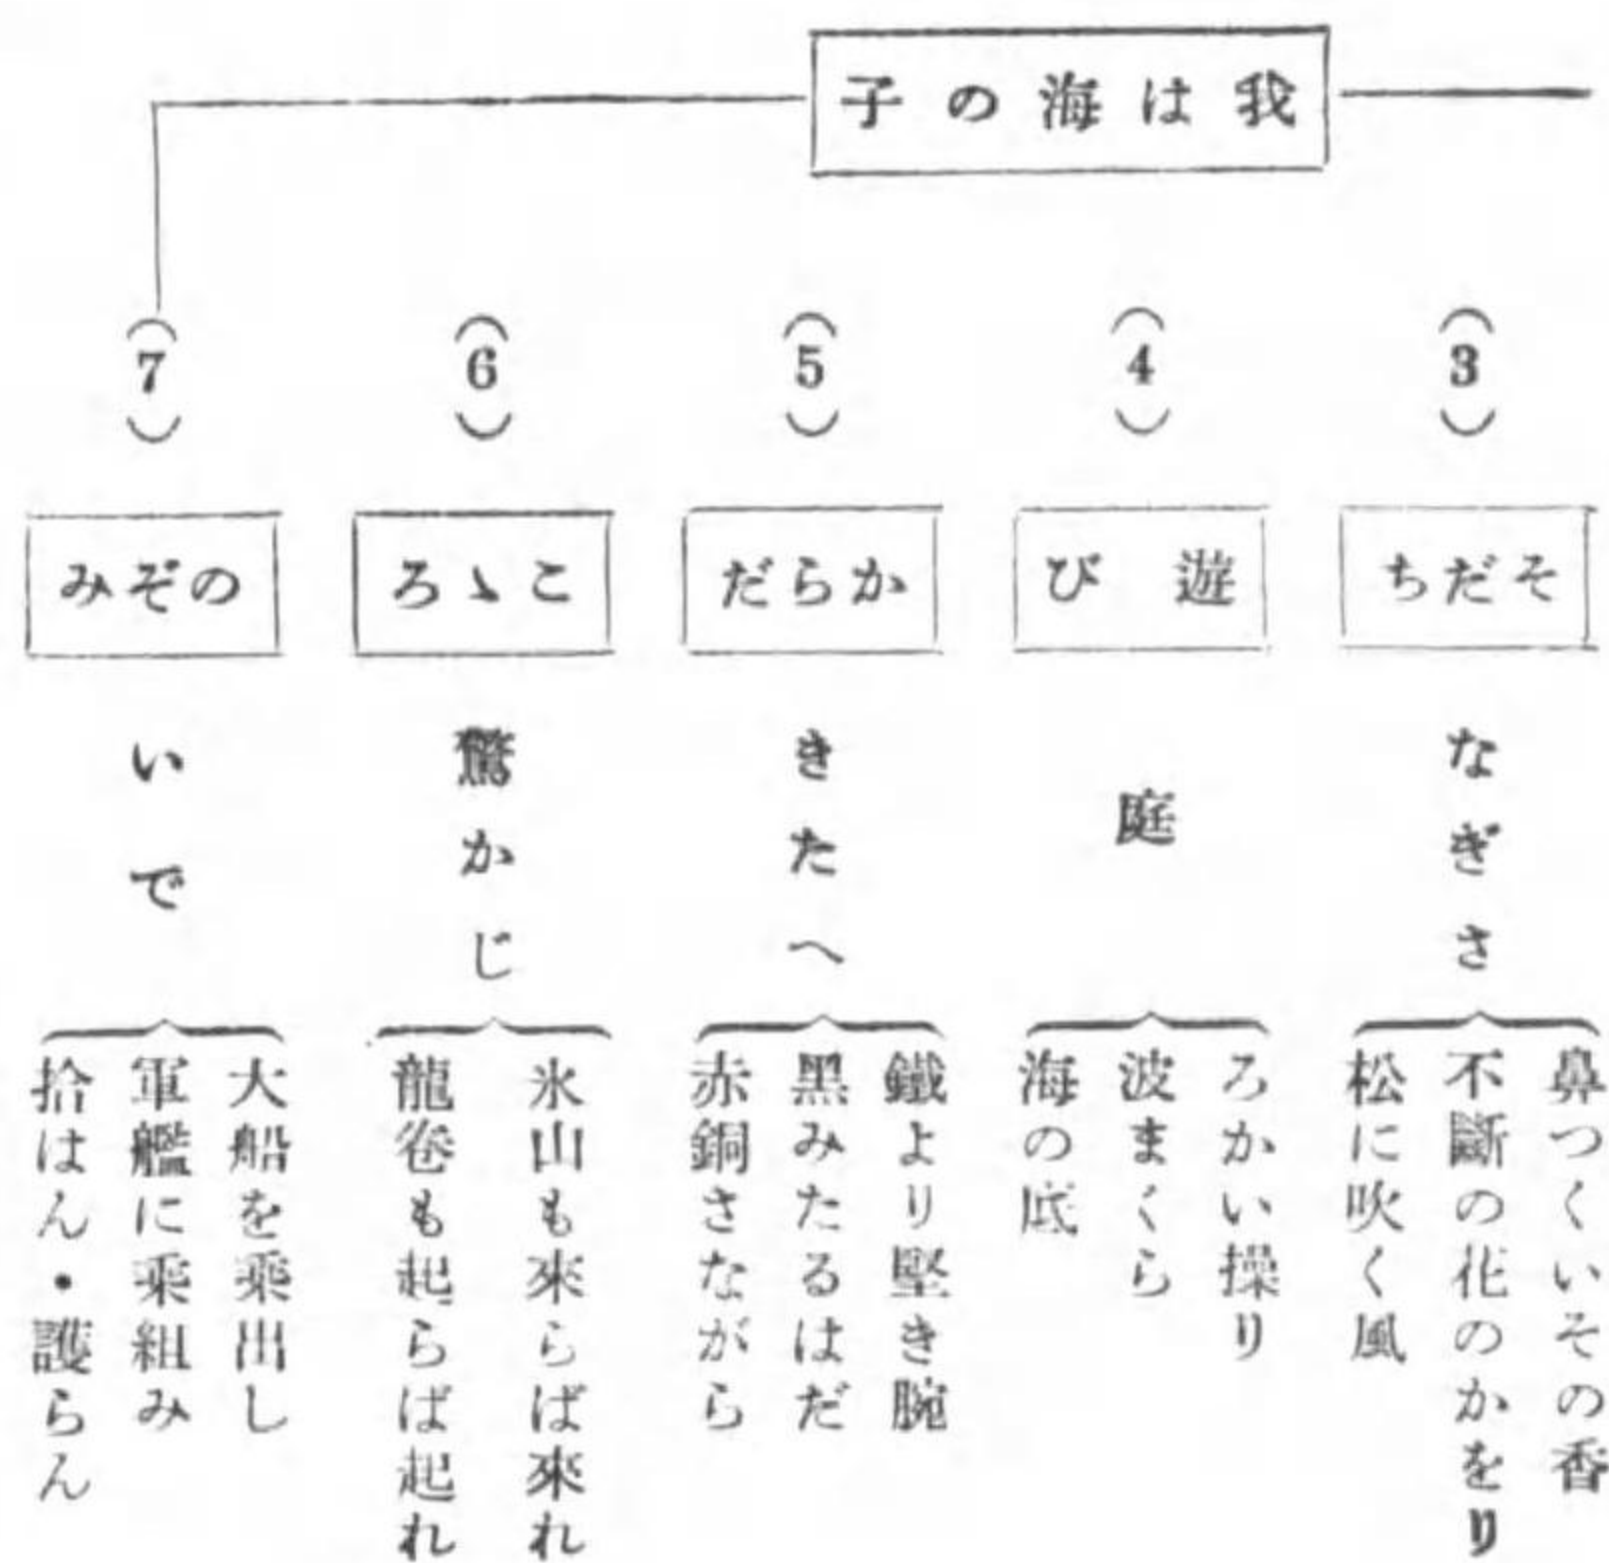 我は海の子
(3)
そだち
なぎさ
鼻つくいその香
不斷の花のかをり
松に吹く風
(4)
遊び
庭
ろかい操り
波まくら
海の底
(5)
からだ
きたへ
鐵より堅き腕
黑みたるはだ
赤銅さながら
(6)
こゝろ
驚かじ
氷山も來らば來れ
龍卷も起らば起れ
(7)
のぞみ
いで
大船を乘出し
軍艦に乘組み
拾はん・護らん